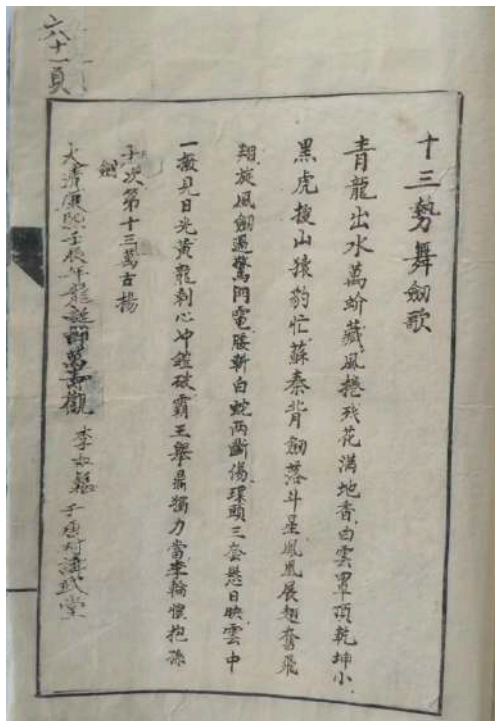 六十一頁
十三勢舞劍歌
青龍出水萬蚧藏風捲残花满地香白雲罩頂乾坤小
黑虎搜山猿豹忙蘇秦背劍落斗星鳳凰展翅奮飛
翔旋風劍過驚閃電腰斬白蛇两斷傷環頭三套懸日映雲中
一撥見日光黃龍刺心冲鎧破霸王舉鼎獨力當車輪懷抱孫
子次第十三萬古揚
劍
大清康熙壬辰年龍誕節萬壽觀 李 千唐村講武堂